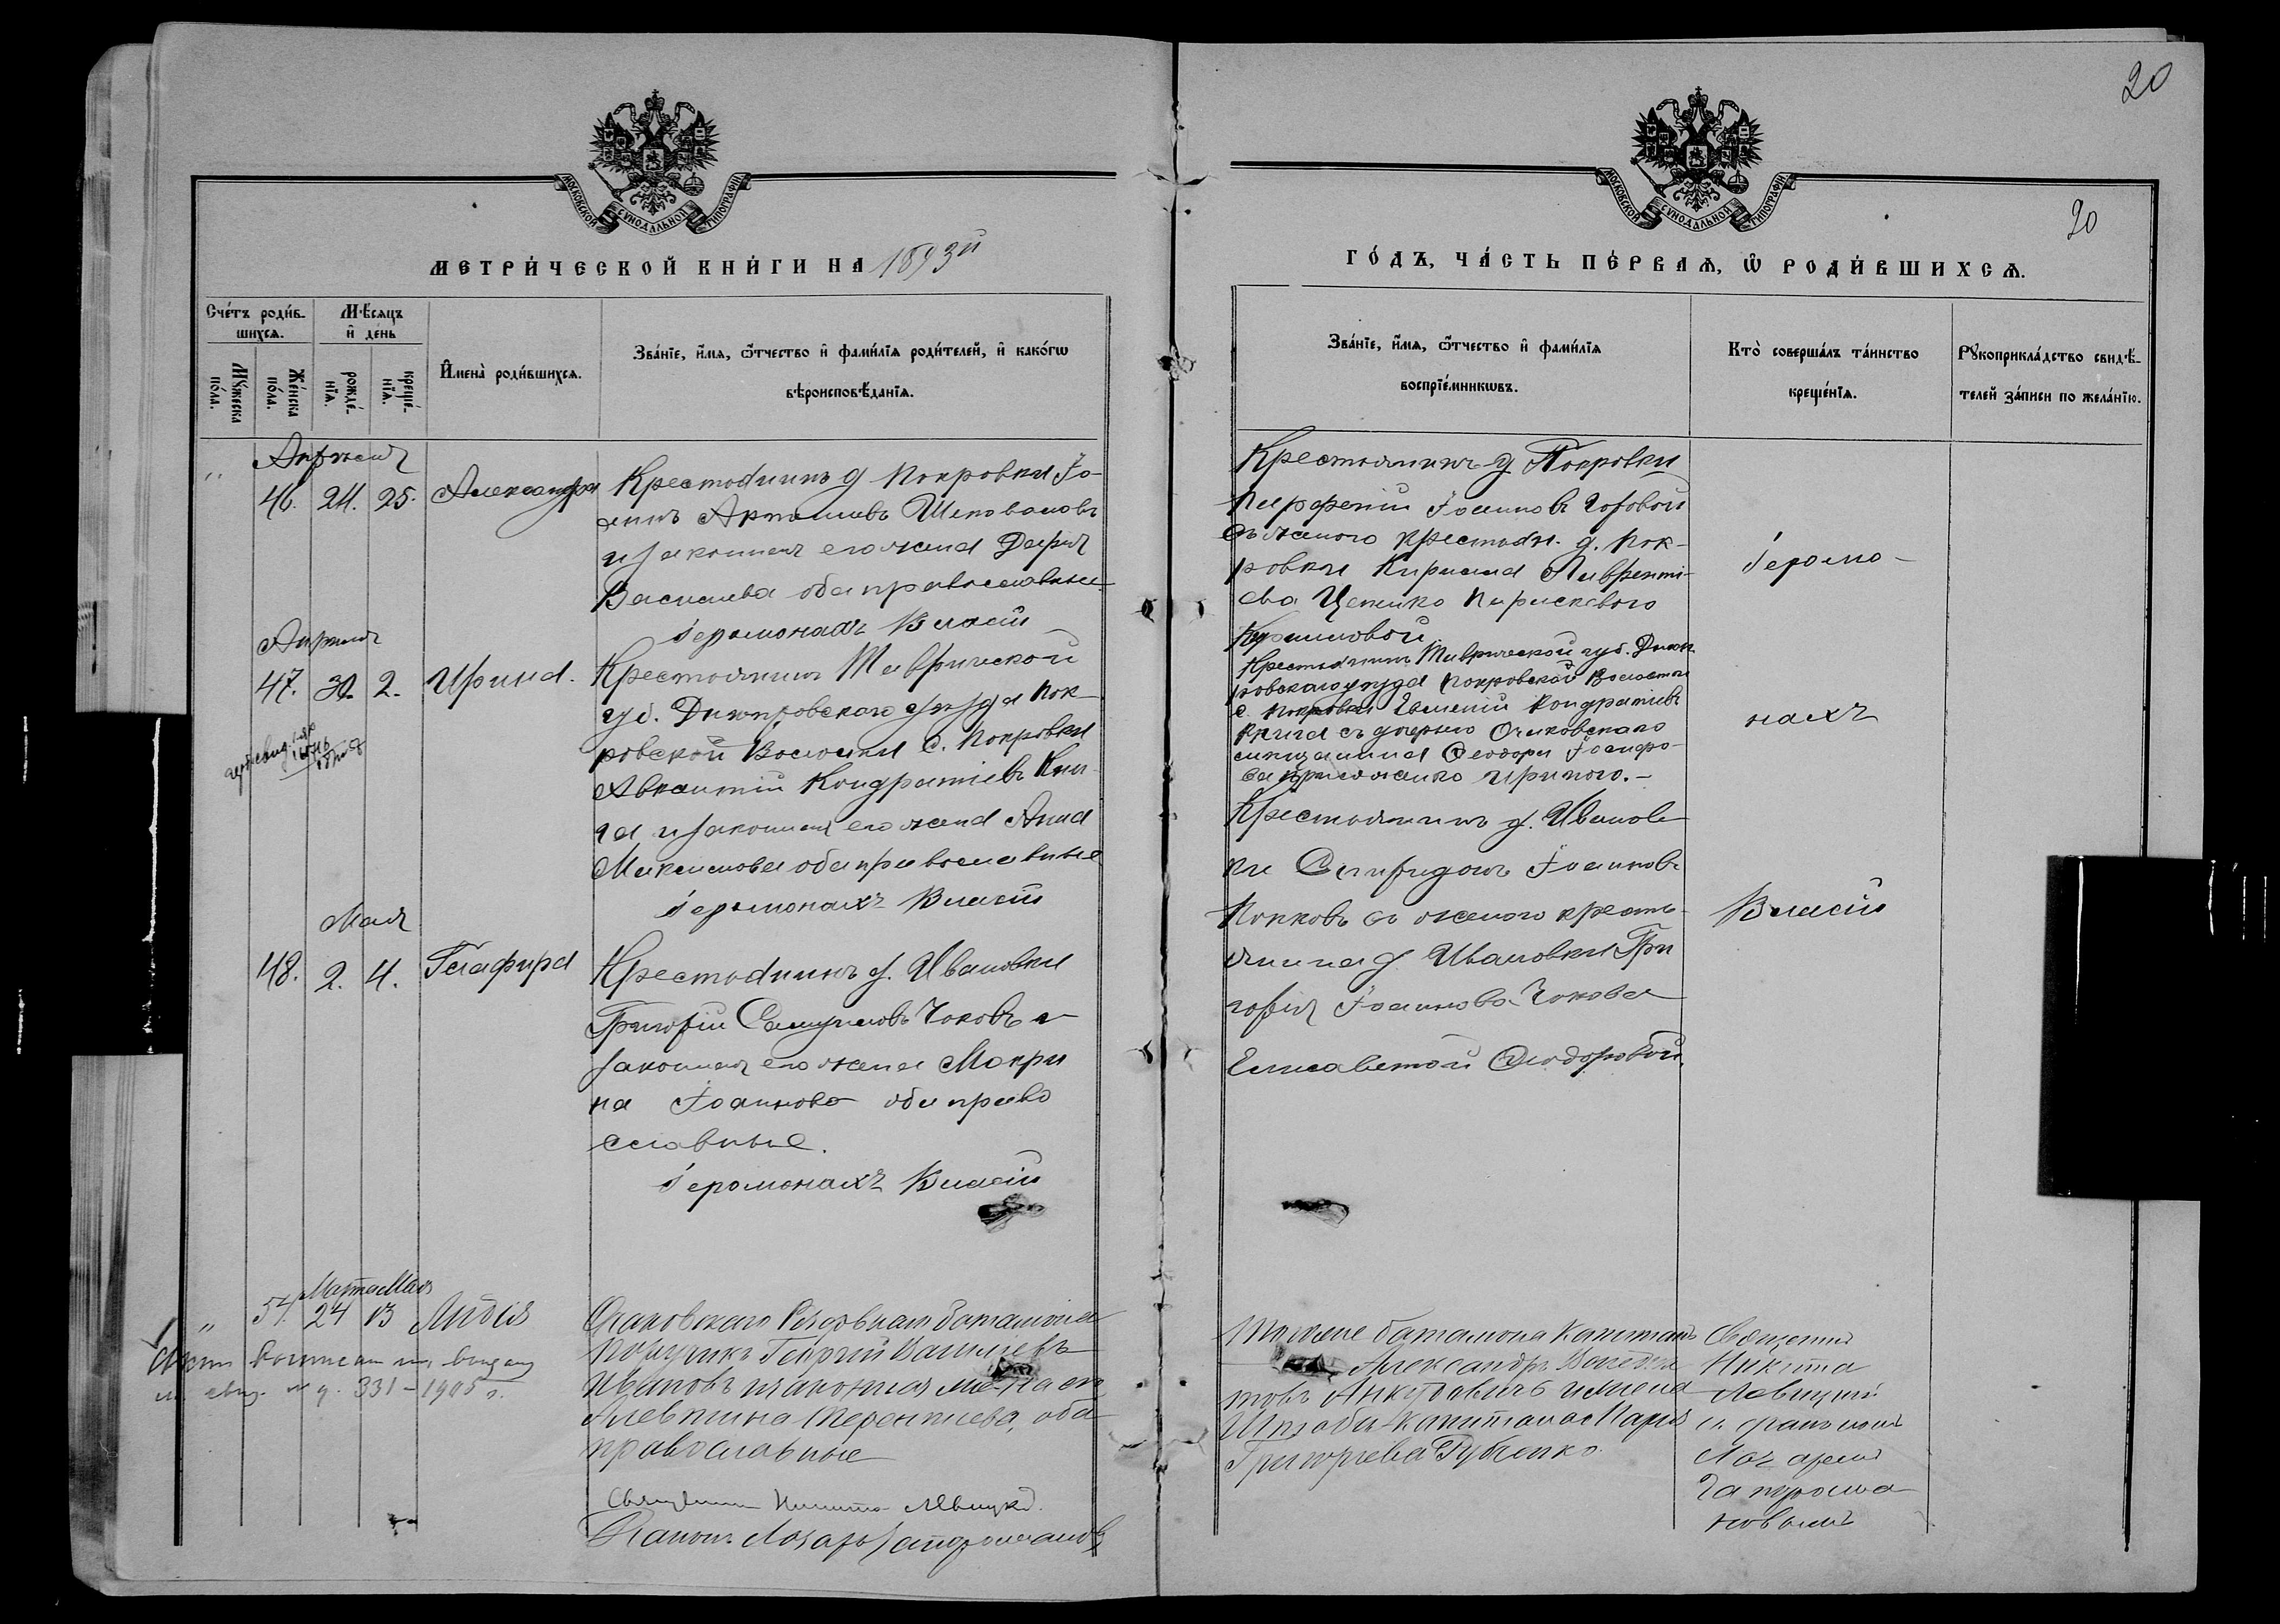 20
20
МОСКОВСКОЙ СѴНОДАЛЬНОЙ ТИПОГРАФІИ
МЕТРИ́ЧЕСКОЙ КНИ́ГИ НА 1893й
Сче́тъ роди́в-
шихсѧ.
Мѣ́сѧцъ
и҆ де́нь
Мꙋ́жеска
по́ла.
Же́нска
по́ла.
рожде́-
нїѧ.
креще́-
нїѧ.
И҆мена̀ роди́вшихсѧ.
Зва́нїе, и҆́мѧ, ѻ҆́тчество и҆ фами́лїѧ роди́телей, и҆ како́гѡ
вѣроисповѣ́данїѧ.
Апрѣля
46. 24. 25. Александра
Крестьянинъ д Покровки Іо-
аннъ Артамовъ Шаповаловъ
и законная его жена Дарія
Васильева оба православные
іеромонахъ Власій
Апрѣля
47. 30. 2. Ирина.
Крестьянинъ Таврической
губ. Днѣпровскаго уѣзда Пок-
ровской Волости с. Покровки
Авксентій Кондратіевъ Кни-
га и законная его жена Анна
Максимова оба православные
іеромонахъ Власій
Мая
48. 2. 4. Глафира
Крестьянинъ д. Ивановки
Григорій Самуиловъ Чоковъ и
законная его жена Макри
на Іоаннова оба право
славные.
іеромонахъ Власій
Марта Мая
54. 24 13 Лидія
331 - 1905 г.
Очаковскаго Резервнаго баталіона
Поручикъ Георгій Васильевъ
Ивановъ и законная жена его
Алевтина Терентьева, оба
православные
Священникъ Никита Левицкій.
ГО́ДЪ, ЧА́СТЬ ПЕ́РВАѦ, Ѡ҆ РОДИ́ВШИХСѦ.
МОСКОВСКОЙ СѴНОДАЛЬНОЙ ТИПОГРАФІИ
Зва́нїе, и҆́мѧ, ѻ҆́тчество и҆ фами́лїѧ
воспрїе́мникѡвъ.
Кто̀ соверша́лъ та́инство
креще́нїѧ.
Рꙋкоприкла́дство свидѣ́-
телей за́писи по жела́нїю.
Крестьянинъ д Покровки
Парфеній Іоанновъ
съ женою крестьян. д. Пок-
ровки Кирилла Лаврентi-
ева Параскевою
Кирилловой
Крестьянинъ Таврической губ. Днѣп-
ровскаго уѣзда Покровской Волости
с. Покровки Евгеній Кондратіевъ
Книга съ дочерью Очаковскаго
мѣщанина Ѳеодора
Ириною.-
Крестьянинъ д. Иванов-
ки Спиридонъ Іоанновъ
Попковъ съ женою кресть-
янина д. Ивановки Гри
горія Іоаннова Чокова
Елисаветой Ѳеодоровой.
Іеромо-
нахъ
Власій
Того же баталіона Капитанъ
Александръ
и жена
Штабсъ-капитана Марія
Григорьева Губенко.
Священникъ
Никита
Левицкій